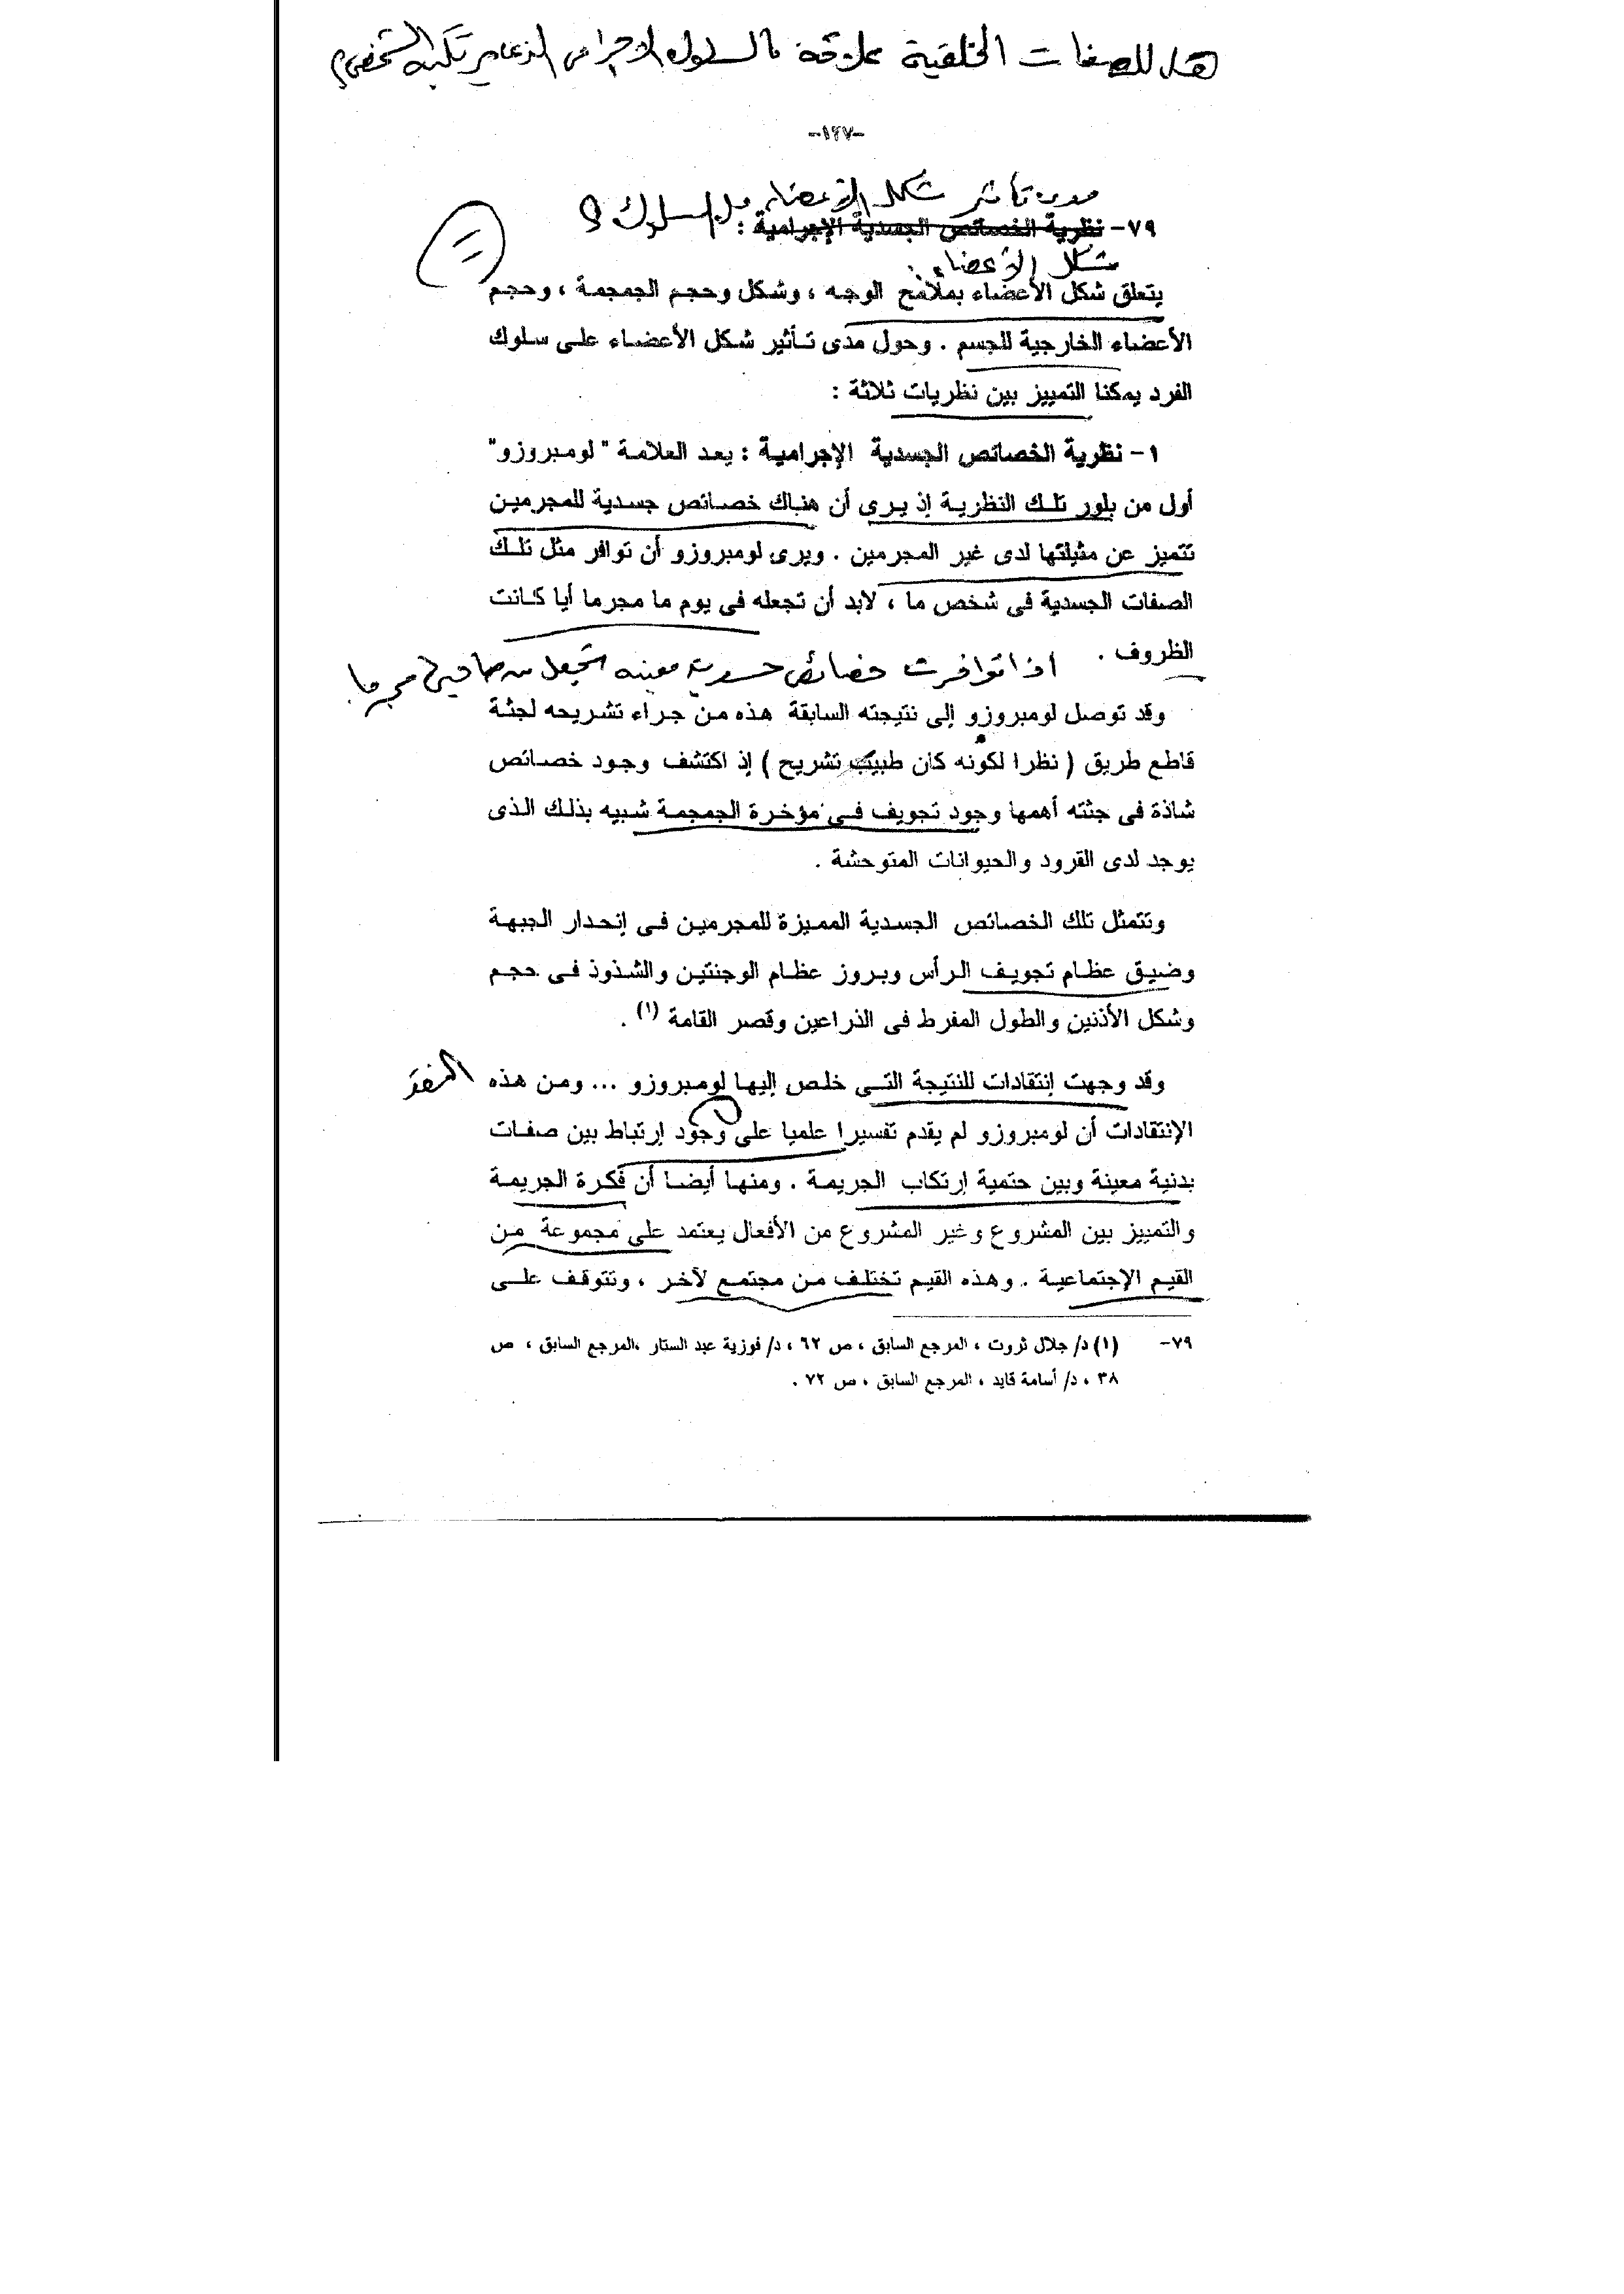 هل للصفات الخلقية علاقة بالسلوك الإجرامى الذى يرتكبه الشخص؟
-١٤٧-
مدى تأثير شكل الأعضاء على السلوك؟
٧٩- نظرية الخصائص الجسدية الإجرامية :
شكل الأعضاء :
يتعلق شكل الأعضاء بملامح الوجه ، وشكل وحجم الجمجمة ، وحجم
الأعضاء الخارجية للجسم . وحول مدى تأثير شكل الأعضاء على سلوك
الفرد يمكنا التمييز بين نظريات ثلاثة :
١- نظرية الخصائص الجسدية الإجرامية : يعد العلامة " لومبروزو"
أول من بلور تلك النظرية إذ يرى أن هناك خصائص جسدية للمجرمين
تتميز عن مثيلتها لدى غير المجرمين . ويرى لومبروزو أن توافر مثل تلك
الصفات الجسدية فى شخص ما ، لابد أن تجعله فى يوم ما مجرما أيا كانت
الظروف .
اذا توافرت خصائص جسدية معينه تجعل من صاحبها مجرما
وقد توصل لومبروزو إلى نتيجته السابقة هذه من جراء تشريحه لجثة
قاطع طريق ( نظرا لكونه كان طبيب تشريح ) إذ اكتشف وجود خصائص
شاذة فى جثته أهمها وجود تجويف فى مؤخرة الجمجمة شبيه بذلك الذى
يوجد لدى القرود والحيوانات المتوحشة .
وتتمثل تلك الخصائص الجسدية المميزة للمجرمين فى إنحدار الجبهة
وضيق عظام تجويف الرأس وبروز عظام الوجنتين والشذوذ فى حجم
وشكل الأذنين والطول المفرط فى الذراعين وقصر القامة (١) .
النقد
وقد وجهت إنتقادات للنتيجة التى خلص إليها لومبروزو ... ومن هذه
الإنتقادات أن لومبروزو لم يقدم تفسيرا علميا على وجود إرتباط بين صفات
بدنية معينة وبين حتمية إرتكاب الجريمة . ومنها أيضا أن فكرة الجريمة
والتمييز بين المشروع وغير المشروع من الأفعال يعتمد على مجموعة من
القيم الإجتماعية . وهذه القيم تختلف من مجتمع لآخر ، وتتوقف على
٧٩- (١) د/ جلال ثروت ، المرجع السابق ، ص ٦٢ ، د/ فوزية عبد الستار ،المرجع السابق ، ص
٣٨ ، د/ أسامة قايد ، المرجع السابق ، ص ٧٢ .